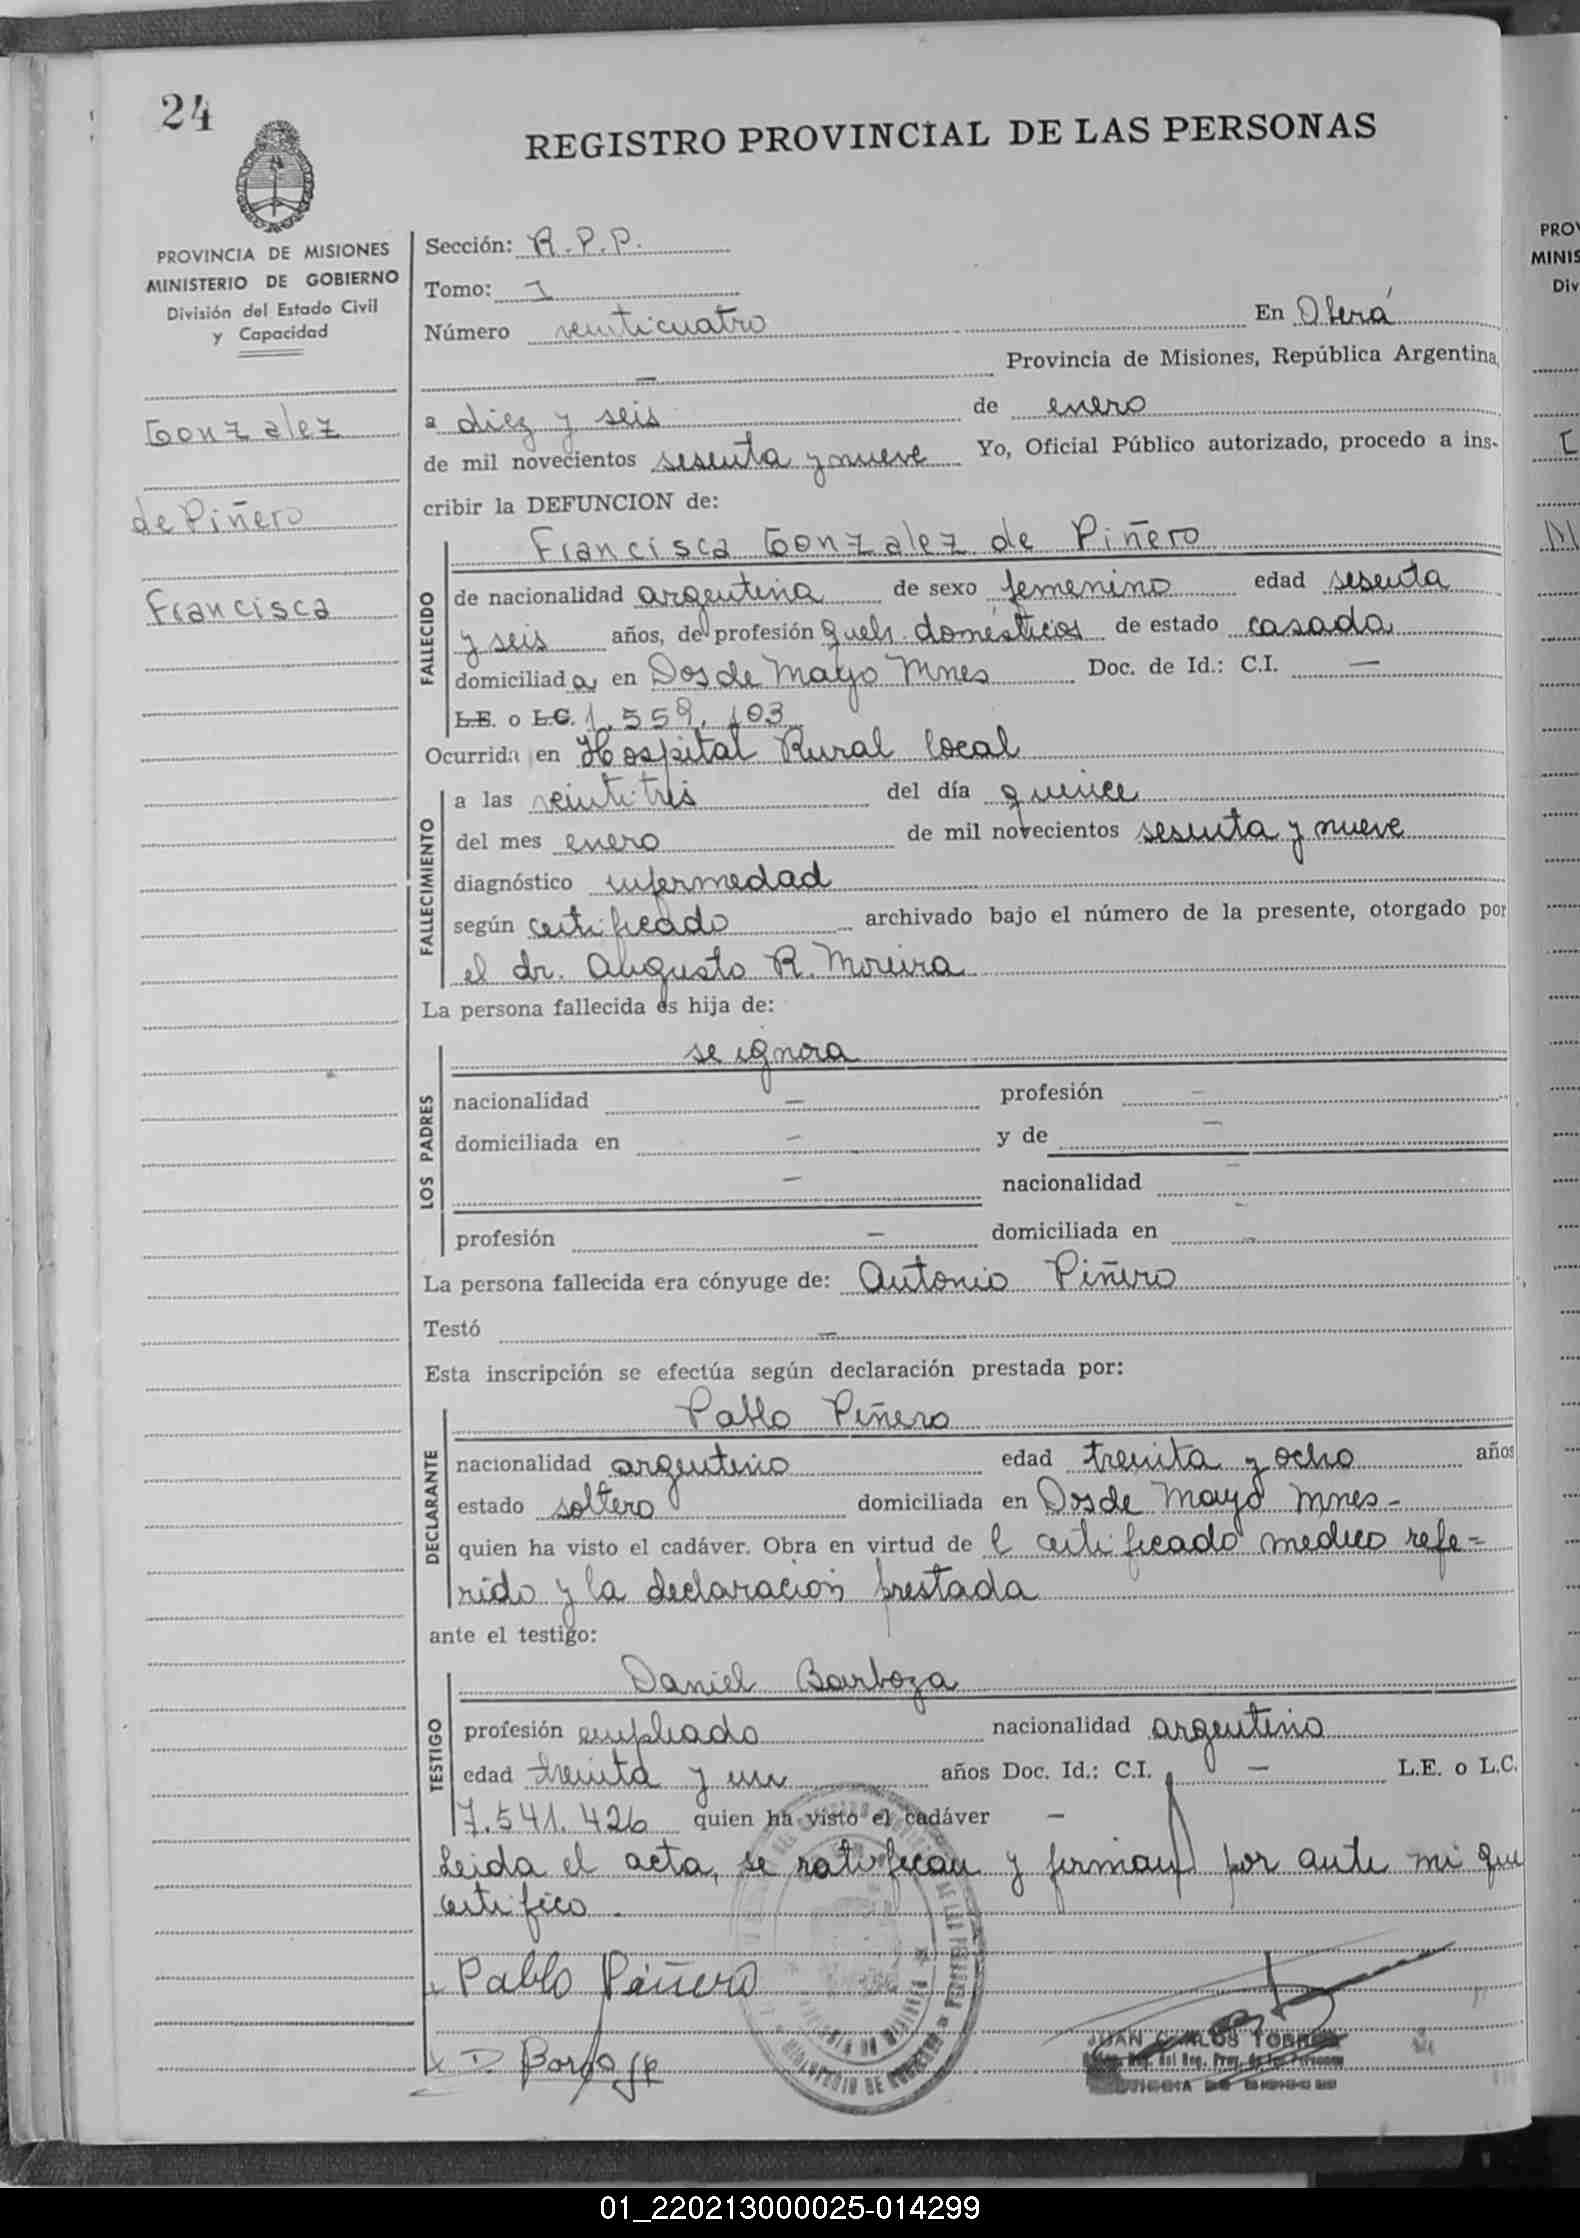 24
REGISTRO PROVINCIAL DE LAS PERSONAS
PROVINCIA DE MISIONES
MINISTERIO DE GOBIERNO
División del Estado Civil
y Capacidad
Gonzalez
de Piñero
Francisca
Sección: R.P.P.
Tomo: I
Número veinticuatro En Oberá
— Provincia de Misiones, República Argentina,
a diez y seis de enero
de mil novecientos sesenta y nueve Yo, Oficial Público autorizado, procedo a ins-
cribir la DEFUNCION de:
FALLECIDO
Francisca Gonzalez de Piñero
de nacionalidad argentina de sexo femenino edad sesenta
y seis años, de profesión queh. domésticos de estado casada
domiciliada en Dos de Mayo Mnes Doc. de Id.: C.I. —
L.E. o L.C. 1.559.103
Ocurrida en Hospital Rural local
FALLECIMIENTO
a las veintitrés del día quince
del mes enero de mil novecientos sesenta y nueve
diagnóstico enfermedad
según certificado archivado bajo el número de la presente, otorgado por
el dr. Augusto R. Moreira
La persona fallecida es hija de:
LOS PADRES
se ignora
nacionalidad — profesión —
domiciliada en — y de —
— nacionalidad —
profesión — domiciliada en —
La persona fallecida era cónyuge de: Antonio Piñero
Testó —
Esta inscripción se efectúa según declaración prestada por:
DECLARANTE
Pablo Piñero
nacionalidad argentino edad treinta y ocho años
estado soltero domiciliada en Dos de Mayo Mnes-
quien ha visto el cadáver. Obra en virtud de l certificado medico refe=
rido y la declaración prestada
ante el testigo:
TESTIGO
Daniel Barboza
profesión empleado nacionalidad argentino
edad treinta y un años Doc. Id.: C.I. — L.E. o L.C.
7.541.426 quien ha visto el cadáver —
Leida el acta, se ratifican y firman por ante mi que
certifico.
x Pablo Piñero
x D. Barboza
JUAN CARLOS TORRES
PROV
MINIS
Div
01_220213000025-014299